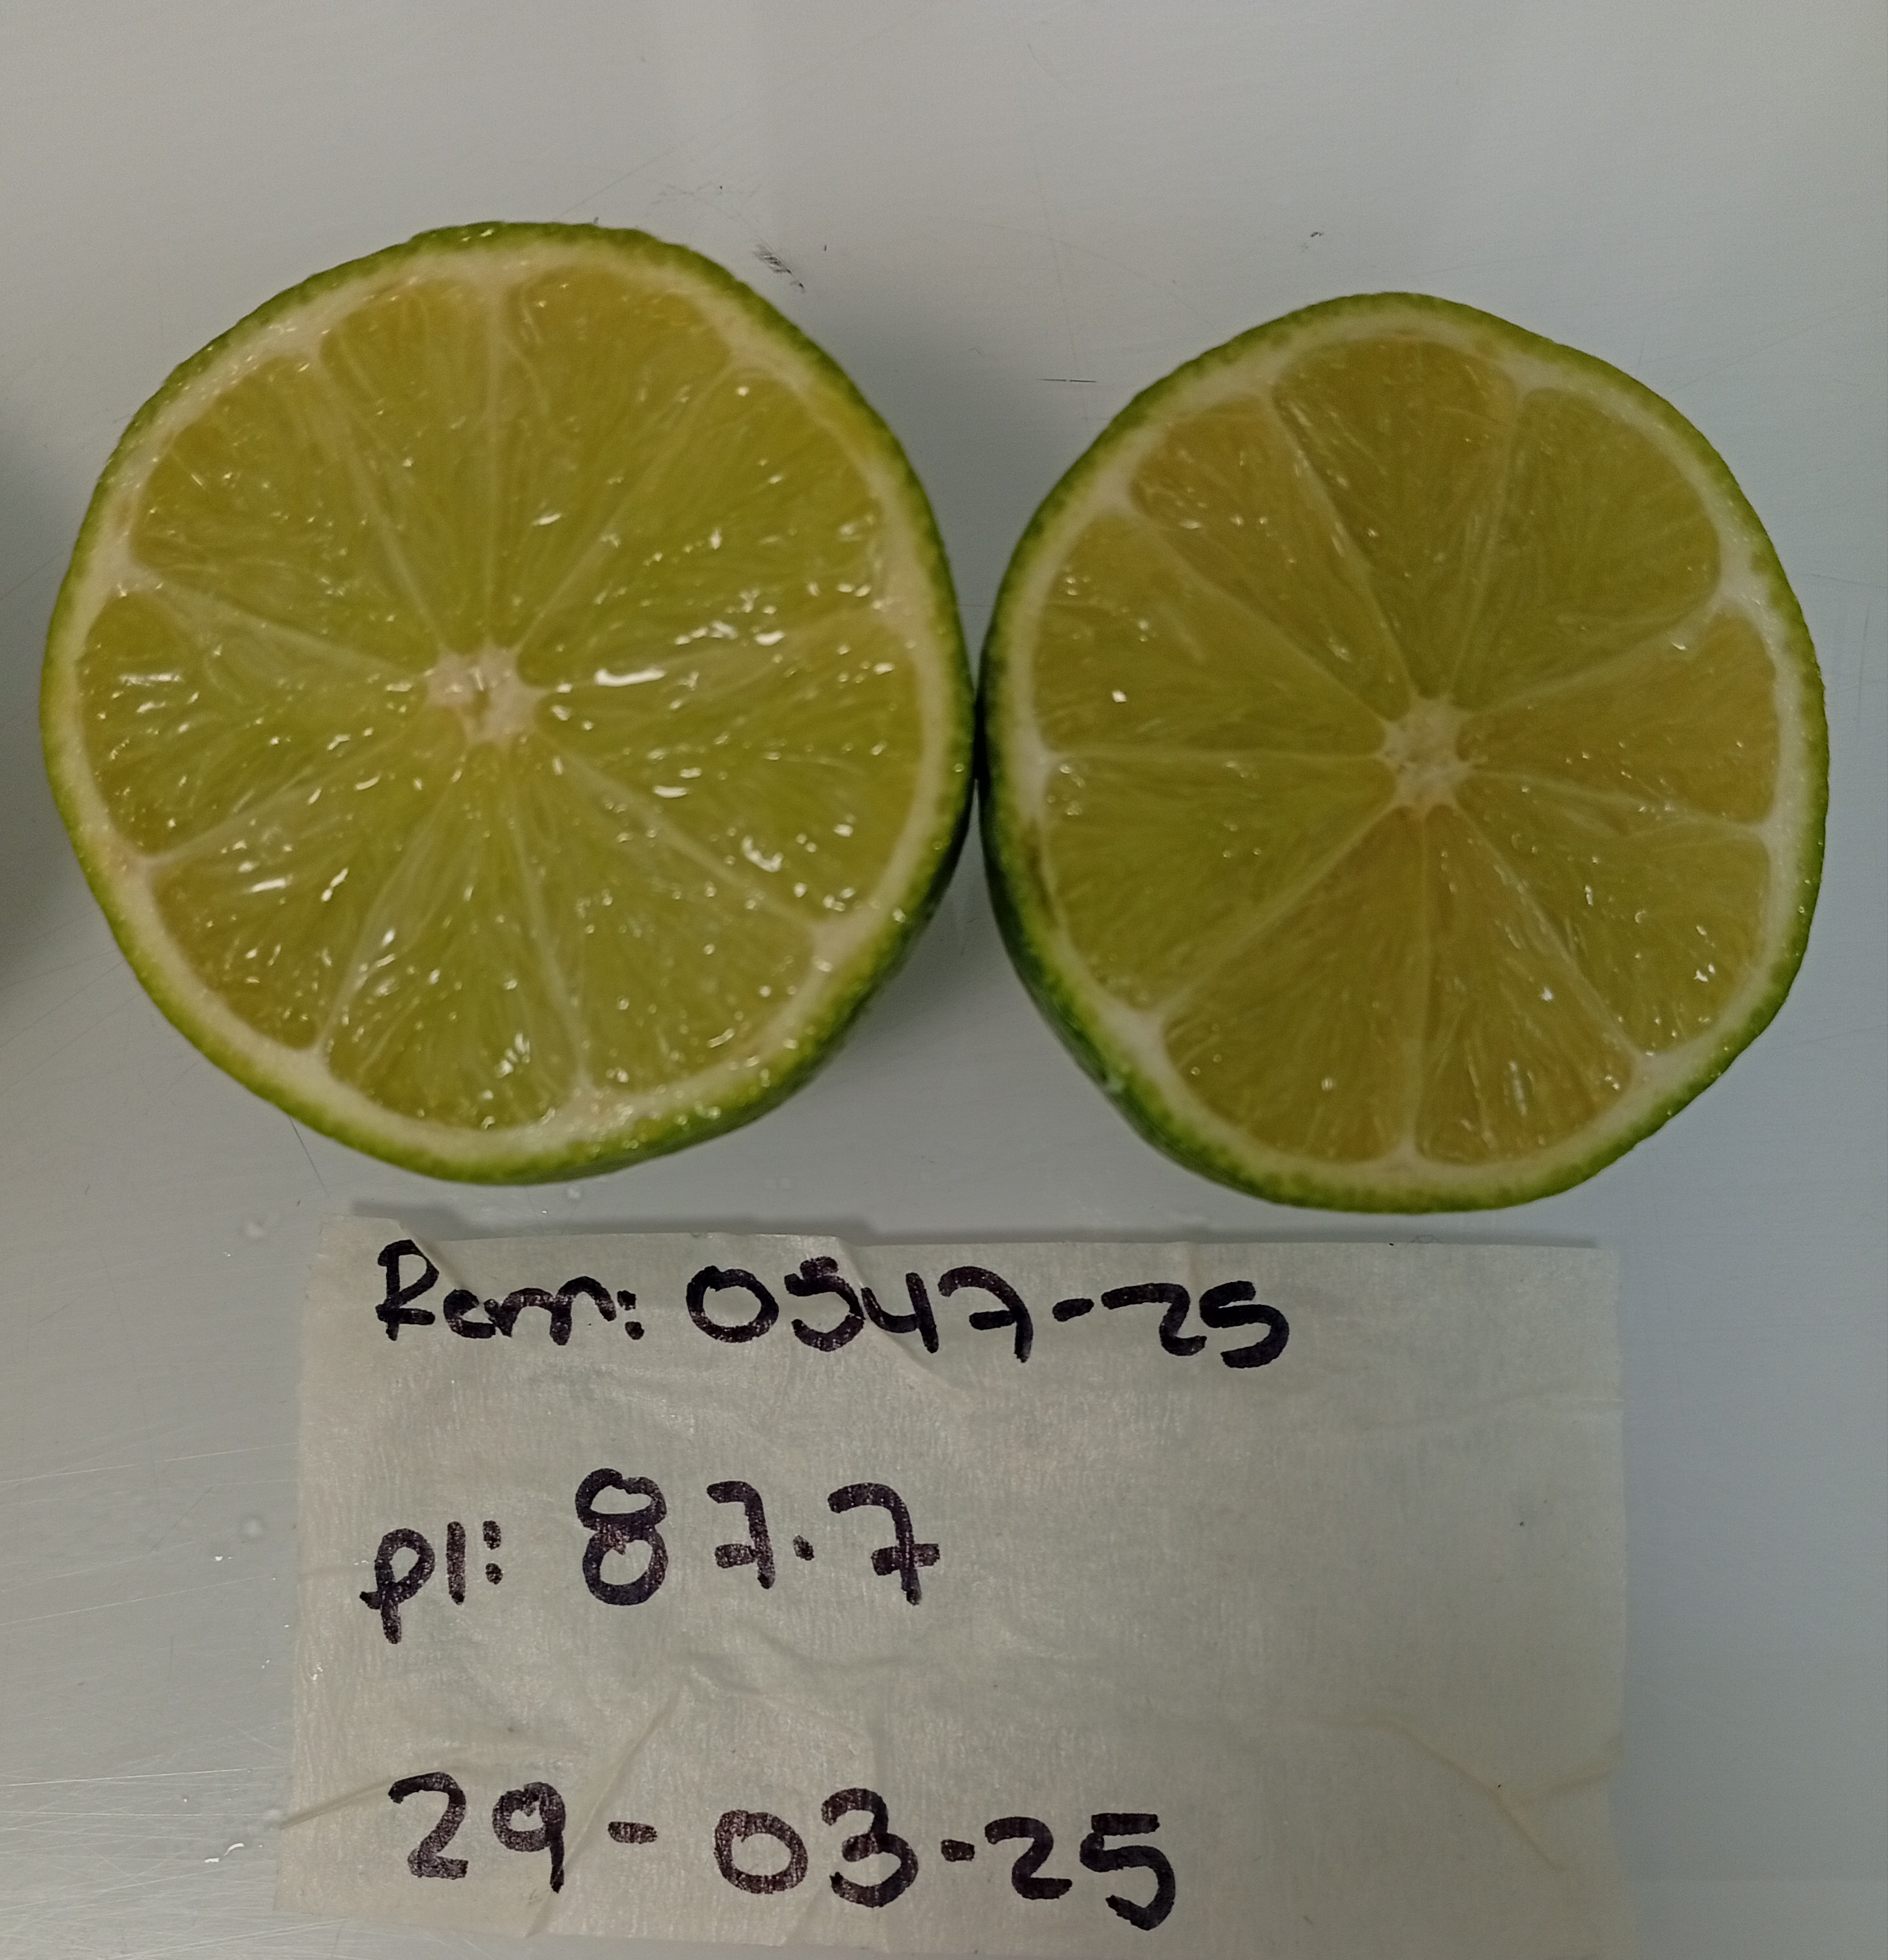 Rem: 0547-25
pl: 87.7
29-03-25